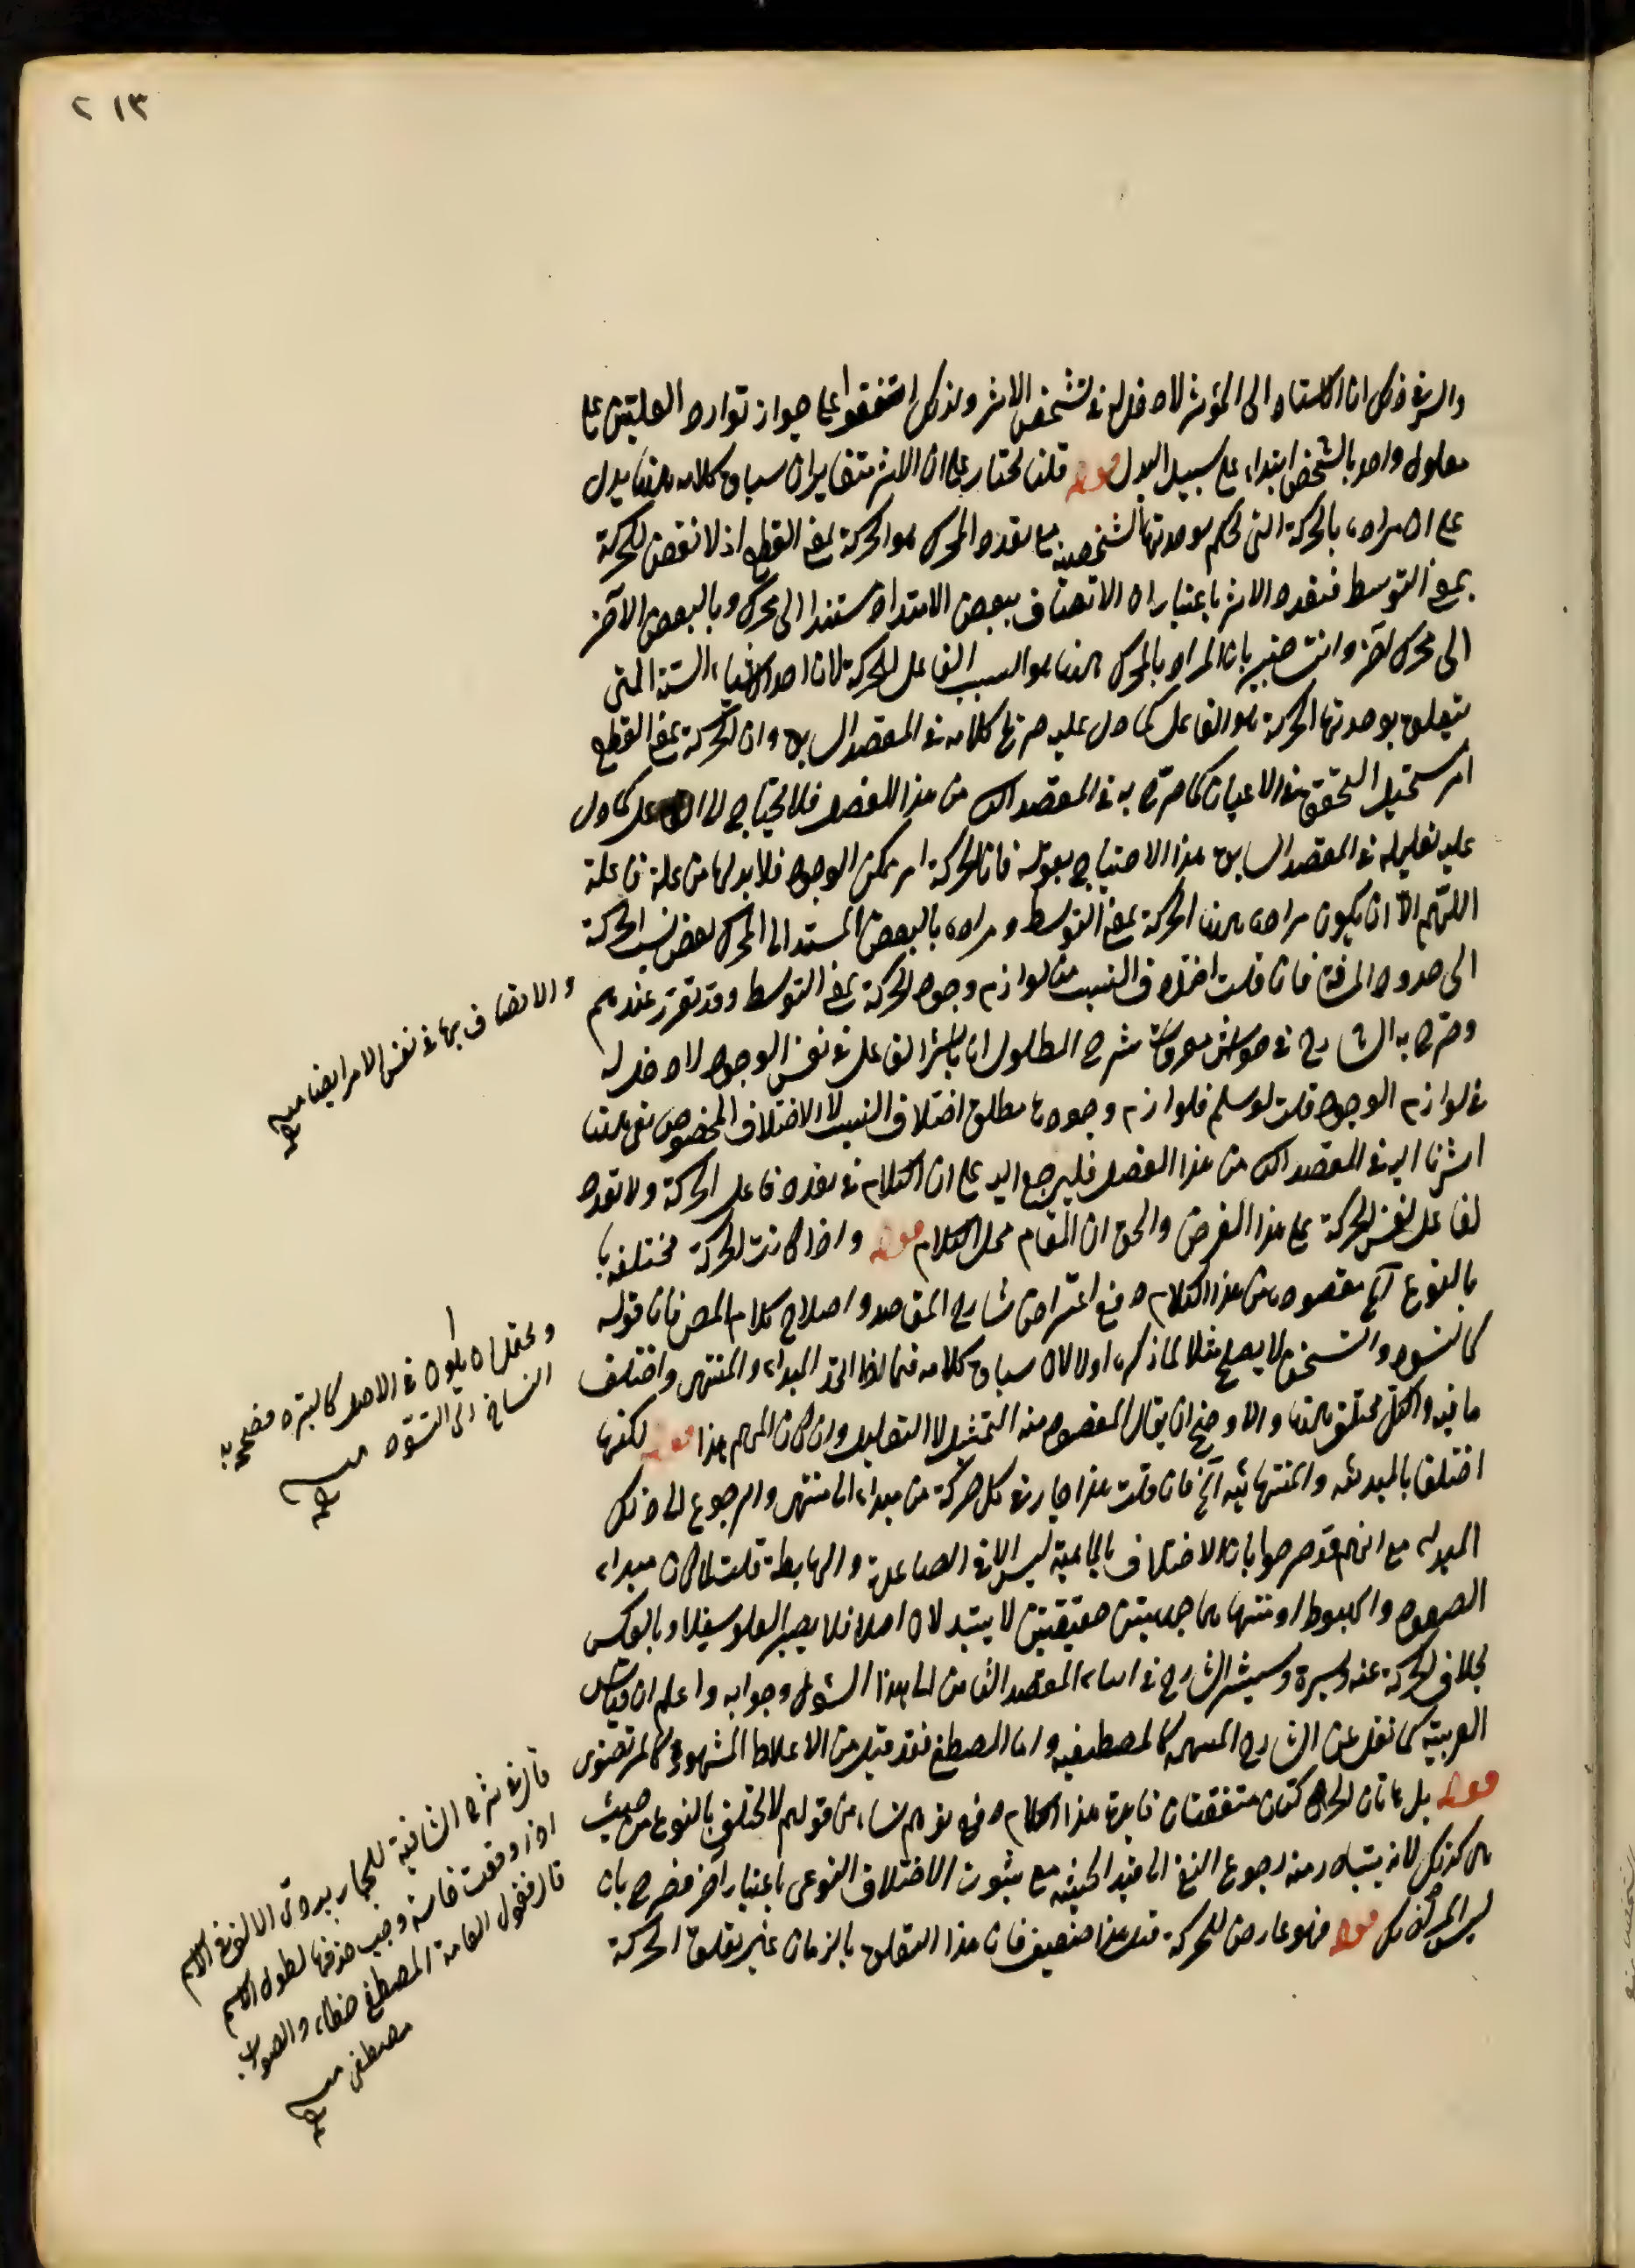 ٢١٣
والسر في ذلك ان الاستناد الى المؤثر لا دخل له في تشخص الاثر ولذلك اتفقوا على جواز توارد العلتين على
معلول واحد بالشخص ابتداء على سبيل البدل قوله قلنا نختار على ان الاثر متغاير ان سياق كلامه ههنا يدل
على ان مراده بالحركة التي حكم بوحدتها الشخصية مع تعدد المحرك هو الحركة بمعنى القطع اذ لا نقص للحركة
بمعنى التوسط فتعدد الاثر باعتبار ان الاتصاف ببعض الامتداد مستند الى محرك وبالبعض الآخر
الى محرك آخر وانت خبير بان المراد بالمحرك ههنا هو السبب الفاعل للحركة لان احد الاشياء الستة التي
يتعلق بوحدتها الحركة هو الفاعل كما دل عليه صريح كلامه في المقصد السابق وان الحركة بمعنى القطع
امر مستحيل التحقق في الاعيان كما صرح به في المقصد من هذا الفصل فلا يحتاج الى الفاعل كما دل
عليه تعليله في المقصد السابق هذا الاحتياج بقوله فان الحركة امر ممكن الوجود فلا بد لها من علة فاعلة
اللهم الا ان يكون مراده ههنا الحركة بمعنى التوسط ومراده بالبعض المستند الى المحرك بعض نسب الحركة
الى حدود المسافة فان قلت اختلاف النسب من لوازم وجود الحركة بمعنى التوسط وقد تقرر عندهم
وصرح به الشارح في حواشي شرح المطالع ان تأثير الفاعل في نفس الوجود لا دخل له
في لوازم الوجود قلت لو سلم فلوازم وجودها مطلق اختلاف النسب لا الاختلاف المخصوص نعم ههنا
اشرنا اليه في المقصد من هذا الفصل فليرجع اليه على ان الكلام في تعدد فاعل الحركة ولا تعدد
لفاعل نفس الحركة على هذا الفرض والحق ان المقام محل الكلام قوله واذا كانت الحركة مختلفة
بالنوع آه مقصوده من هذا الكلام دفع اعتراض شارح المقاصد واصلاح كلام المص فان قوله
كالتسود والتسخن لا يصلح مثلا لما ذكره اولا لان سياق كلامه فيما اذا اتحد المبداء والمنتهى واختلف
ما فيه والكل مختلف ههنا والاوضح ان يقال المقصود منه التمثيل لا التقليد وان كان المر هذا قوله لكنها
اختلفا بالمبدئية والمنتهائية آه فان قلت هذا جار في كل حركة من مبداء الى منتهى والرجوع الى ذلك
المبداء مع انهم قد صرحوا بان الاختلاف بالماهية ليس الا في الصاعدة والهابطة قلت لما كان مبداء
الصعود والهبوط او منتهاهما جهتين حقيقيتين لا يتبدلان اصلا فلا يصير العلو سفلا وبالعكس
بخلاف الحركة يمنة ويسرة وسيشير الشارح في اثناء المقصد الثامن الى هذا السؤال وجوابه واعلم ان قياس
العربية كما نقل عن الشارح كالمصطفيه واما المصطفى فقد قيل من الاغلاط المشهورة كالمرتضوى
قوله بل هاتان الحركتان متفقتان فائدة هذا الكلام دفع توهم نشاء من قولهم لا تختلف بالنوع من حيث
هي كذلك لانه يتبادر منه رجوع النفي الى قيد الحيثية مع ثبوت الاختلاف النوعي باعتبار آخر فصرح بان
ليس الامر كذلك قوله فهو عارض للحركة قيل هذا ضعيف فان هذا التعلق بالزمان غير تعلق الحركة
والاتصاف بها في نفس الامر ايضا منه
ويحتمل ان يكون في الاصل كالتبرد فصحفه
الناسخ الى التسود منه
قال في شرح الشافية للجاربردي الالف في الاسم
اذا وقعت خامسة وجب حذفها لطول الاسم
قال فقول العامة المصطفى خطاء والصواب
مصطفى منه